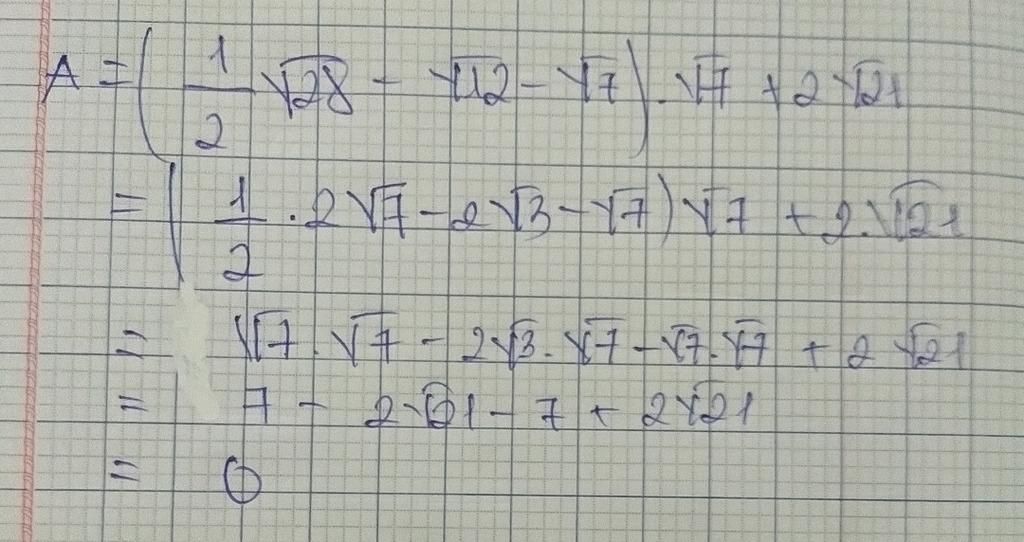 A = ( 1/2 √28 - √12 - √7 ) . √7 + 2 √21
= ( 1/2 . 2 √7 - 2 √3 - √7 ) √7 + 2 . √21
= √7 . √7 - 2 √3 . √7 - √7 . √7 + 2 √21
= 7 - 2 √21 - 7 + 2 √21
= 0